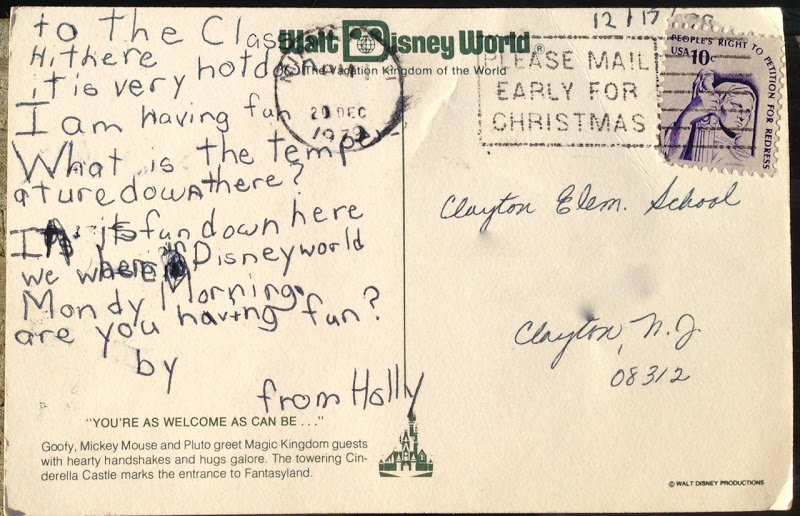 to The Class
Hi there
it is very hot do
I am having fun
What is the temper-
ature down there?
Is it fun down here
we where in Disneyworld
Mondy Morning.
are you having fun?
by
from Holly
"YOU'RE AS WELCOME AS CAN BE . . ."
Goofy, Mickey Mouse and Pluto greet Magic Kingdom guests
with hearty handshakes and hugs galore. The towering Cin-
derella Castle marks the entrance to Fantasyland.
Walt Disney World®
The Vacation Kingdom of the World
PM
20 DEC
PLEASE MAIL
EARLY FOR
CHRISTMAS
12/17/
PEOPLE'S RIGHT TO PETITION FOR REDRESS
USA 10c
Clayton Elem. School
Clayton, N.J.
08312
© WALT DISNEY PRODUCTIONS